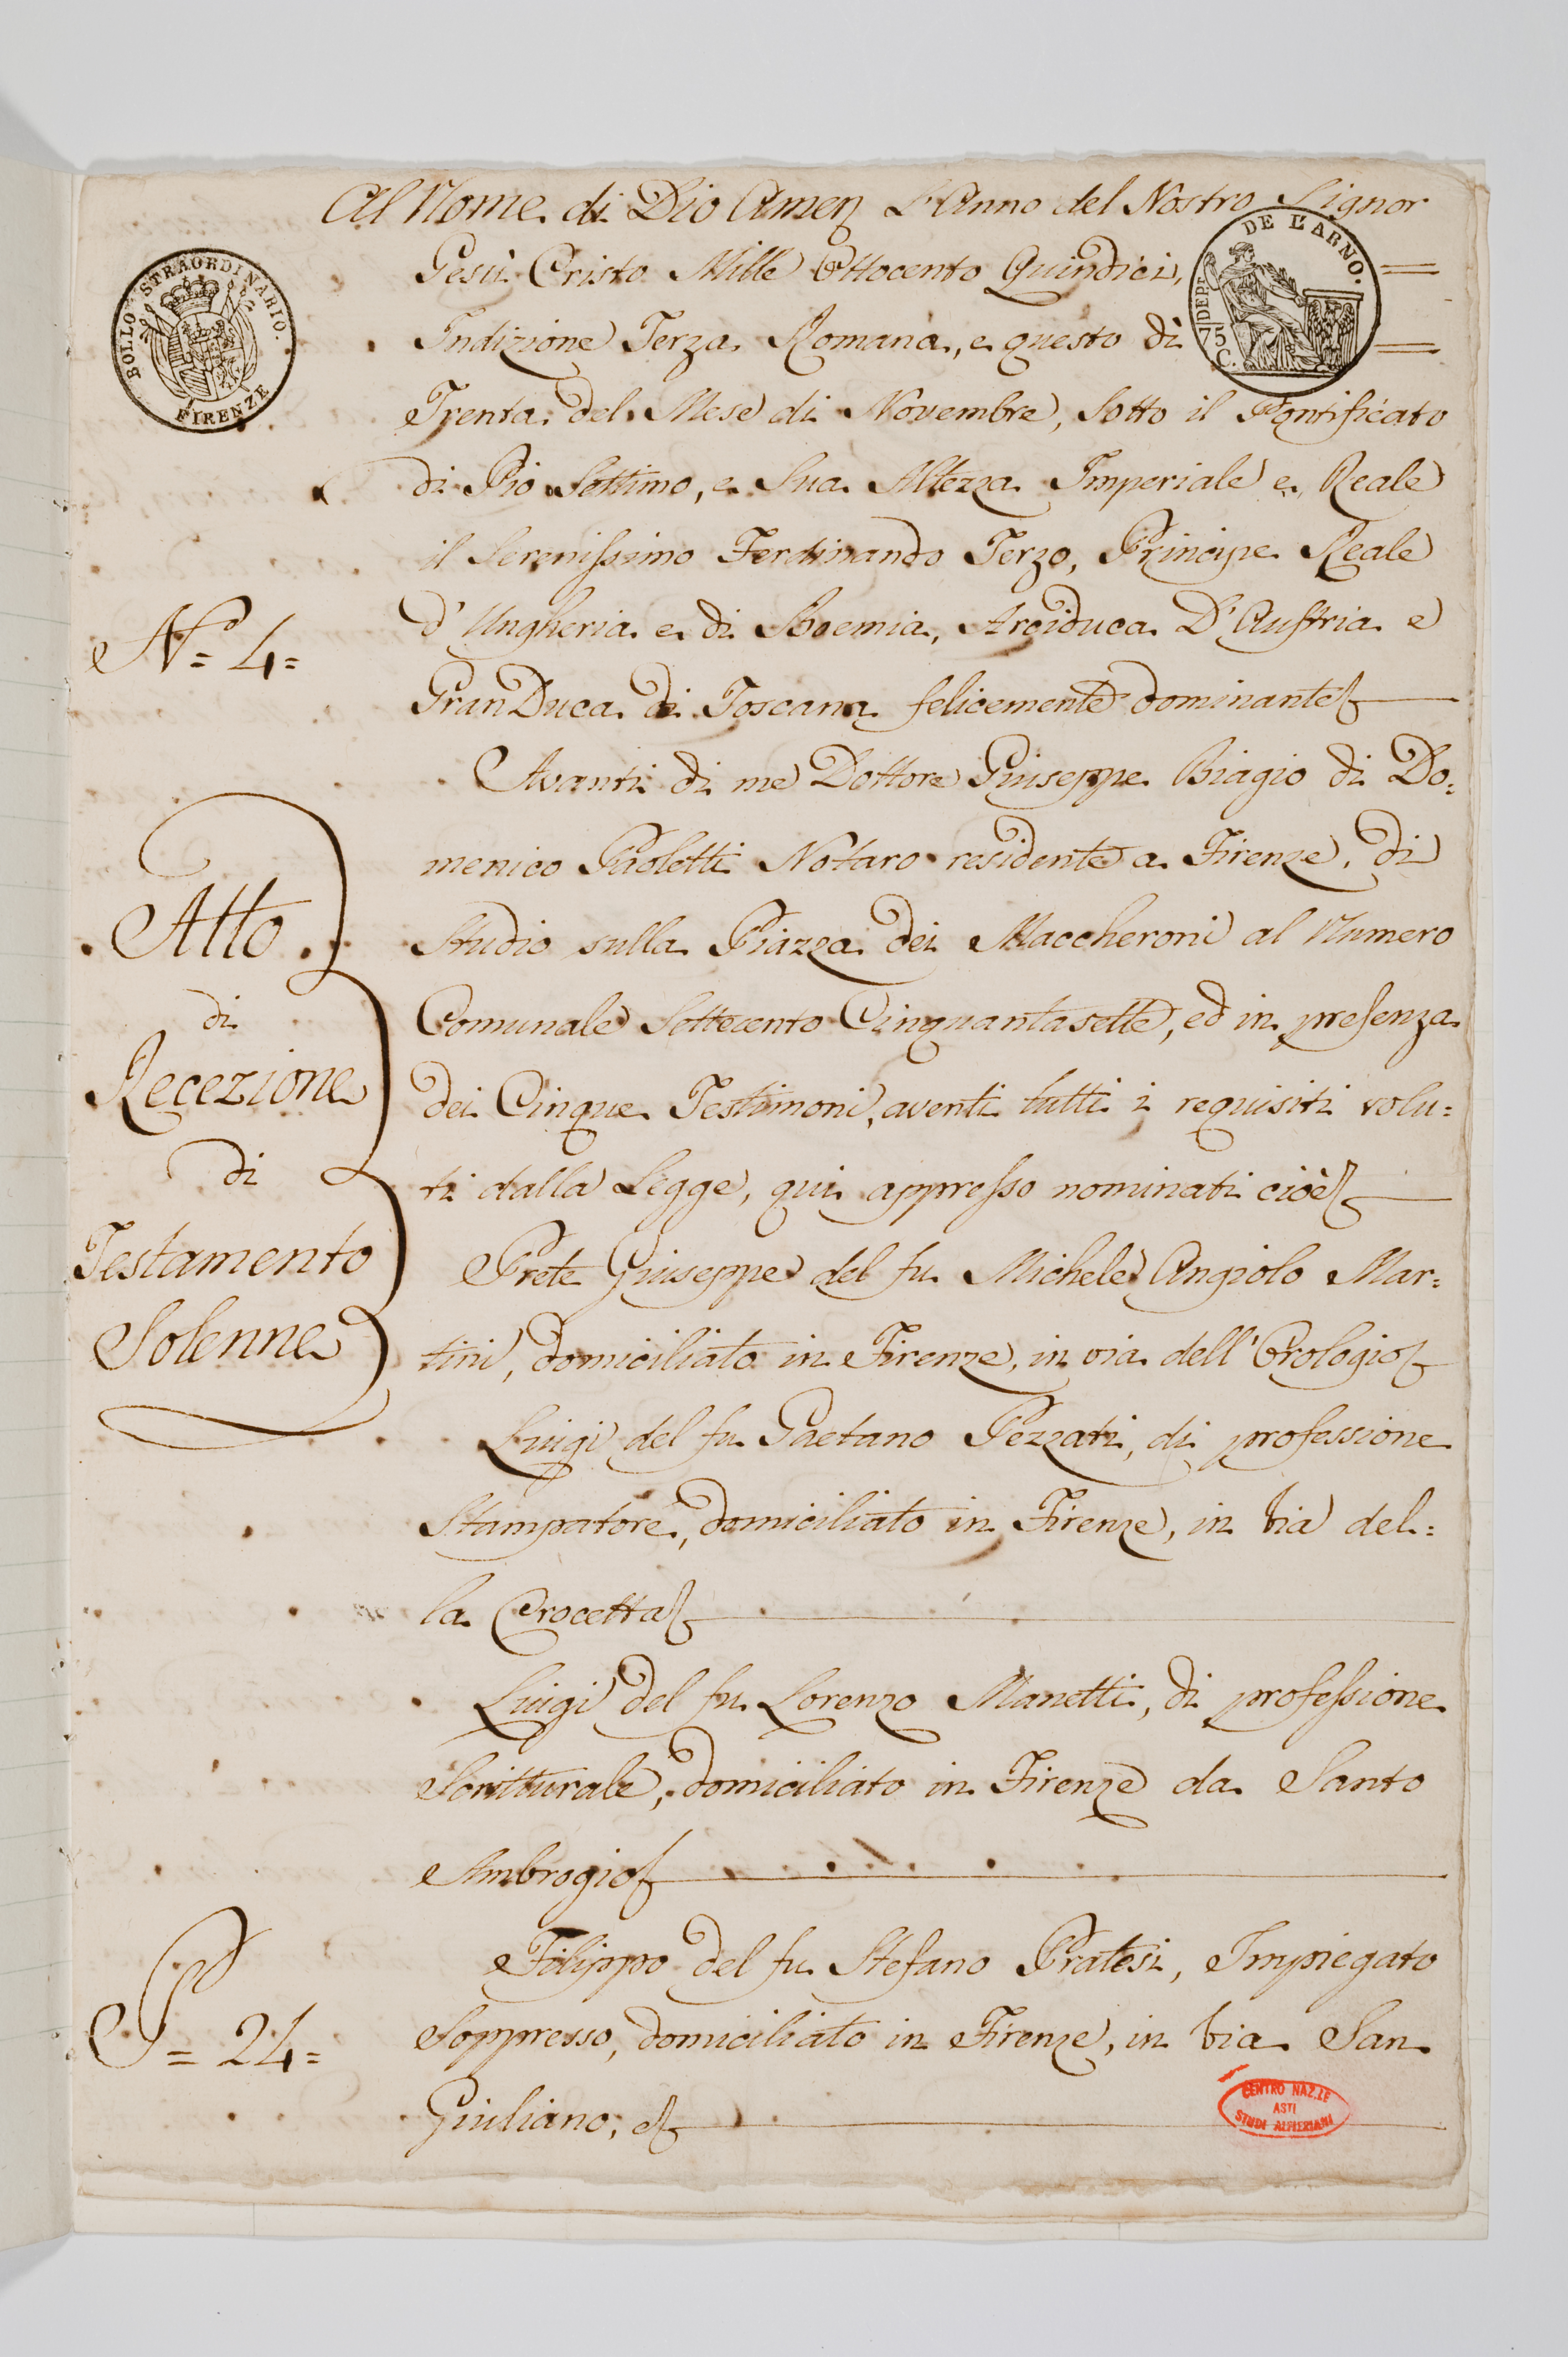 Al Nome di Dio Amen L'Anno del Nostro Signor
Gesù Cristo Mille Ottocento Quindici,
Indizione Terza Romana, e questo dì
Trenta del Mese di Novembre, Sotto il Pontificato
di Pio Settimo, e Sua Altezza Imperiale e Reale
il Serenissimo Ferdinando Terzo, Principe Reale
d'Ungheria e di Boemia, Arciduca D'Austria e
Gran Duca di Toscana felicemente dominante
Avanti di me Dottore Giuseppe Biagio di Do=
menico Paoletti Notaro residente a Firenze, di
Studio sulla Piazza dei Maccheroni al Numero
Comunale Settecento Cinquantasette, ed in presenza
dei Cinque Testimoni, aventi tutti i requisiti volu=
ti dalla Legge, qui appresso nominati cioè
Prete Giuseppe del fu Michele Angiolo Mar=
tini, domiciliato in Firenze, in via dell'Orologio
Luigi del fu Gaetano Pezzati, di professione
Stampatore, domiciliato in Firenze, in Via del=
la Crocetta
Luigi del fu Lorenzo Manetti, di professione
Scritturale, domiciliato in Firenze da Santo
Ambrogio
Filippo del fu Stefano Pratesi, Impiegato
Soppresso, domiciliato in Firenze, in Via San
Giuliano, e
BOLLO STRAORDINARIO.
FIRENZE
DEP.T DE L'ARNO.
75
C.
N.o = 4 =
Atto
di
Recezione
di
Testamento
Solenne
= 24 =
CENTRO NAZ.LE
ASTI
STUDI ALFIERIANI